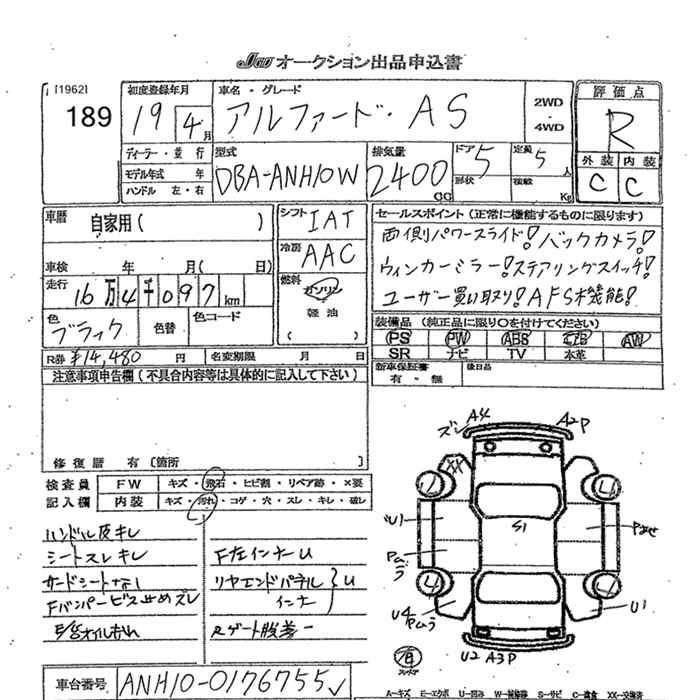 JU オークション出品申込書
[1962]
189
初度登録年月
19 4月
車名・グレード
アルファード・AS
2WD
・
4WD
評価点
R
外装 内装
C C
ディーラー・並行
モデル年式 年
ハンドル 左・右
型式
DBA-ANH10W
排気量
2400
CC
ドア 5
形状
定員 5 人
積載 Kg
車歴 自家用( )
シフト IAT
冷房 AAC
車検 年 月( 日)
走行 16万4千097km
燃料 ガソリン
( 軽油 )
色 ブラック
色替
色コード
R券 ¥14,480 円
名変期限 月 日
セールスポイント(正常に機能するものに限ります)
両側パワースライド!バックカメラ!
ウィンカーミラー!ステアリングスイッチ!
ユーザー買い取り!AFS機能!
装備品(純正品に限り○を付けてください)
PS PW ABS エアB AW
SR ナビ TV 本革
新車保証書
有・無
後日品
注意事項申告欄(不具合内容等は具体的に記入して下さい)
修復歴 有 〔箇所 〕
検査員
記入欄
FW キズ・飛石・ヒビ割・リペア跡・×要
内装 キズ・汚れ・コゲ・穴・スレ・キレ・破レ
ハンドル皮キレ
シートスレキレ
サードシートナシ
Fバンパービス止めズレ
F左インナーU
リヤエンドパネル U
インナー
Rゲート脱着一
ズレ A4 A2P
XX
U1 S1
U4
U1
U2 A3P
車台番号 ANH10-0176755
A=キズ E=エクボ U=凹み S=サビ C=腐食